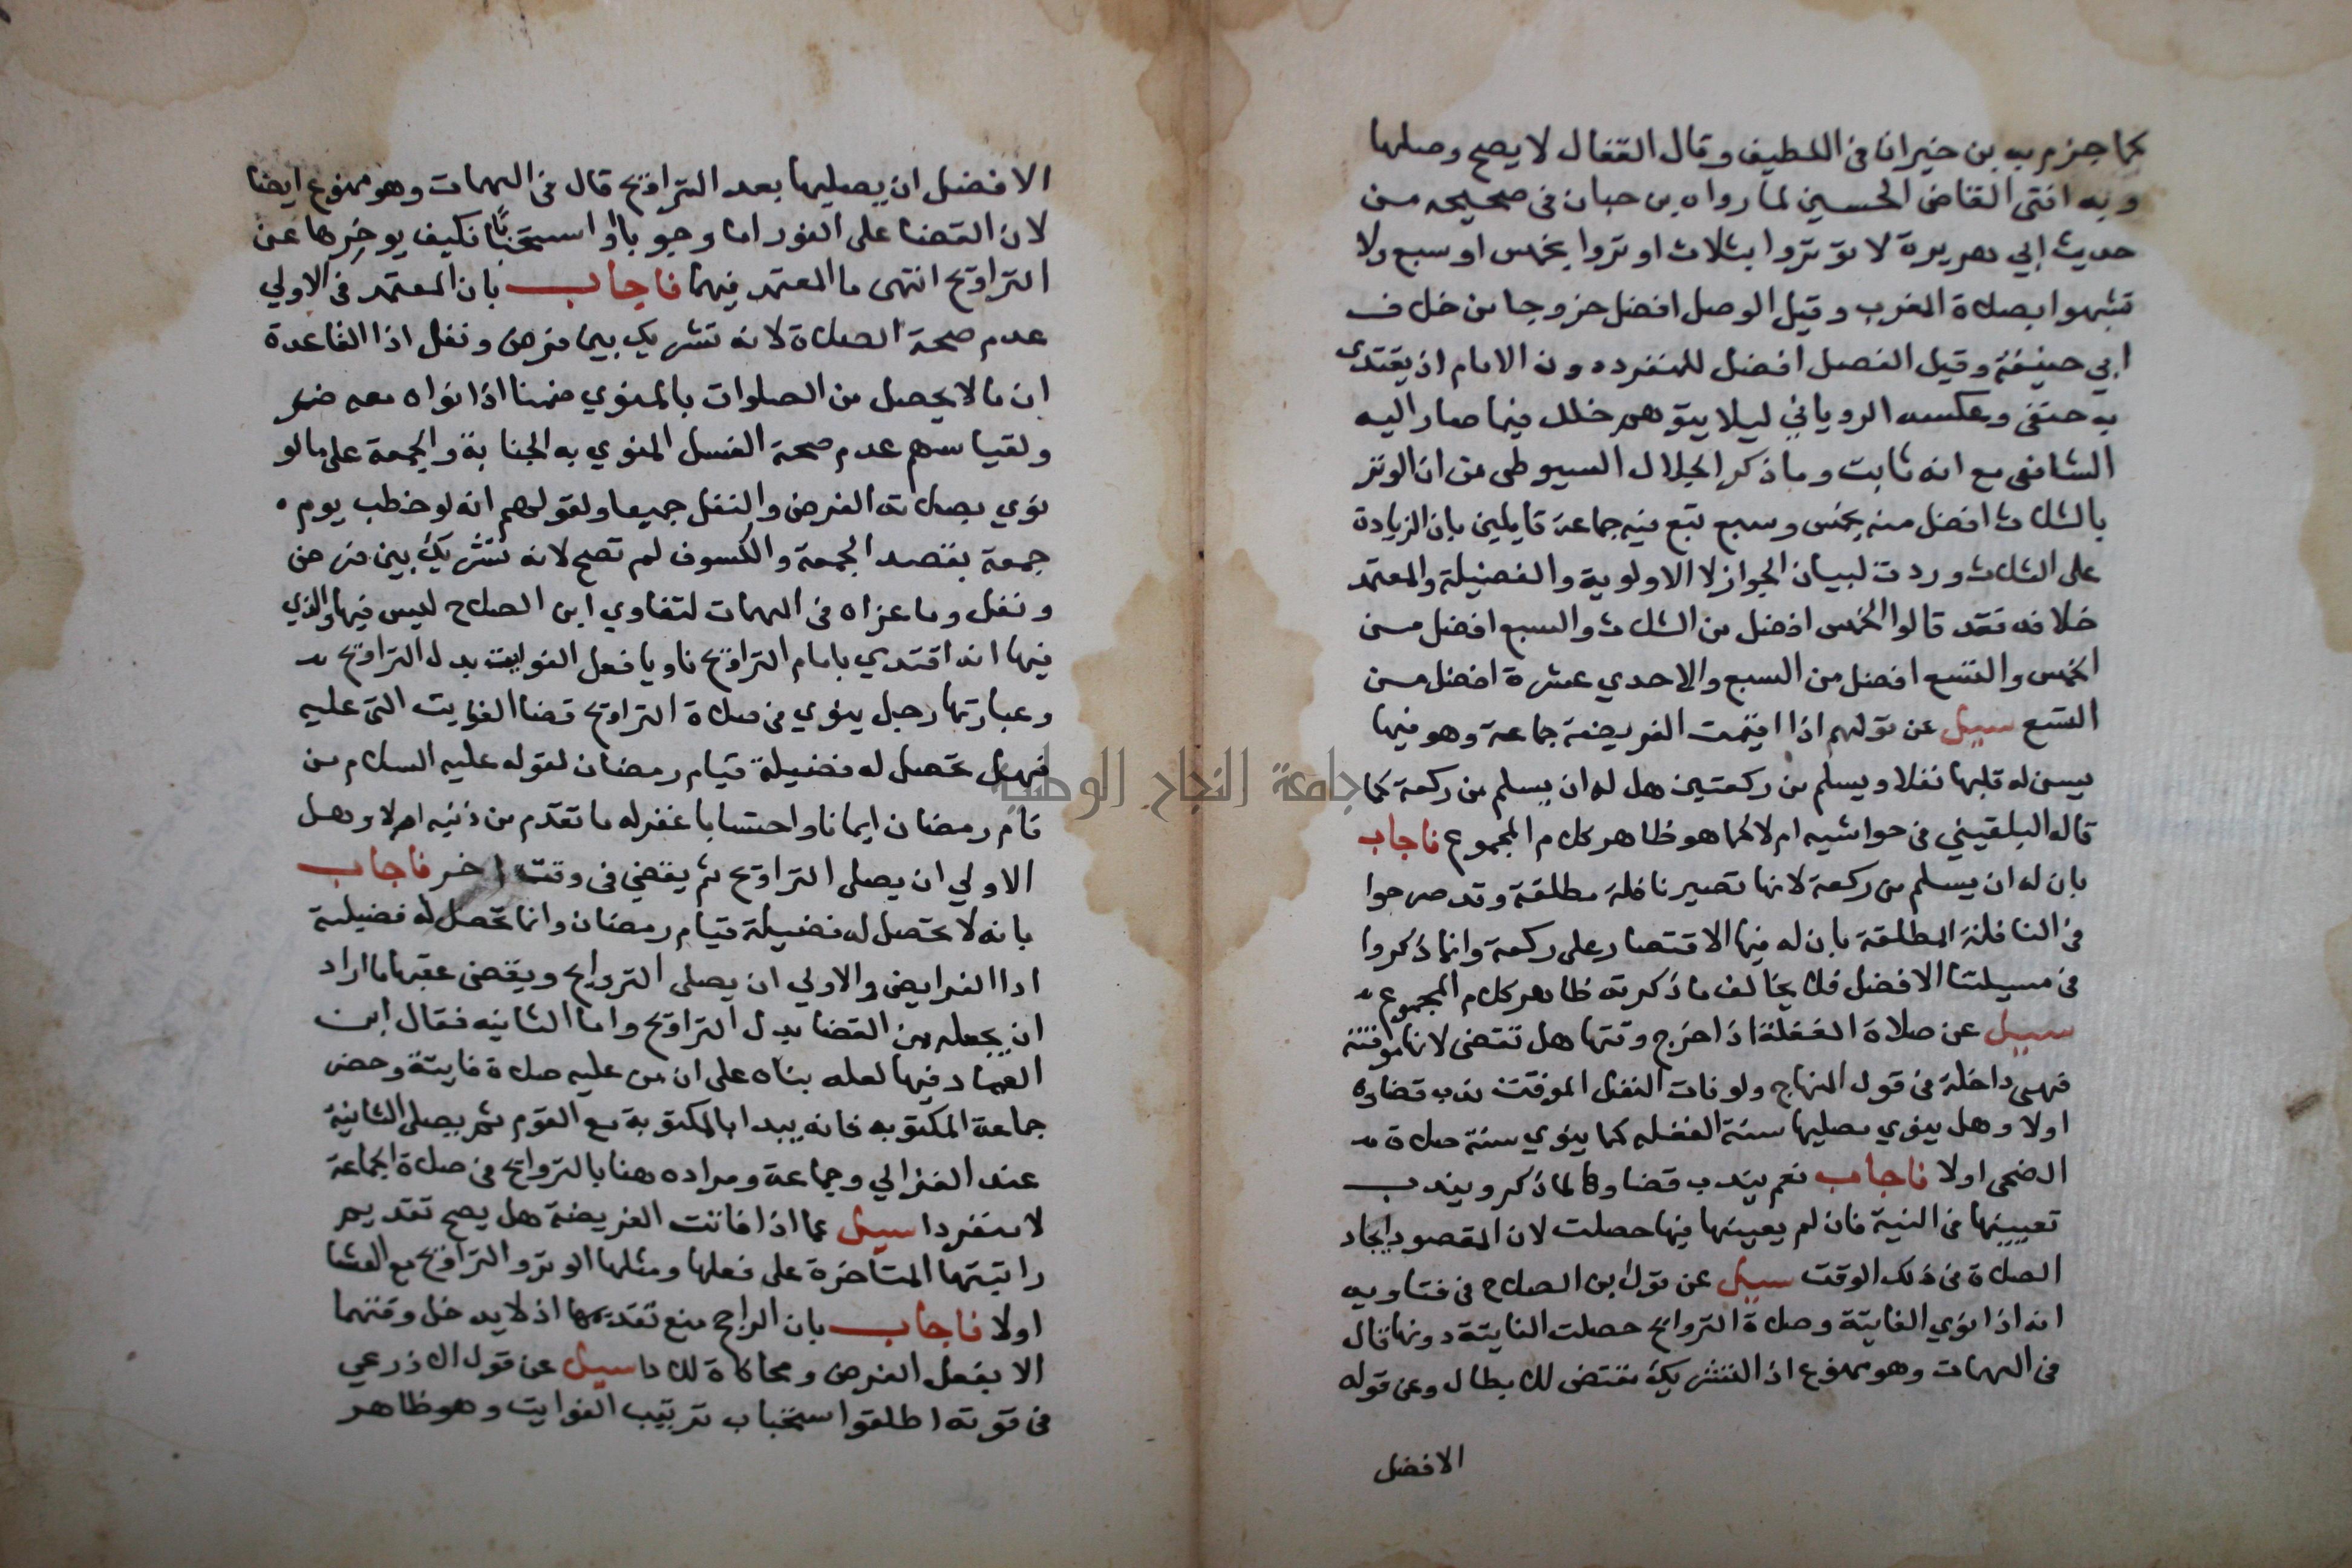 كما جزم به بن خيران في اللطيف وقال القفال لا يصح وصلها
وبه افتى القاضي الحسين لما رواه بن حبان في صحيحه من
حديث ابي هريرة لا توتروا بثلاث اوتروا بخمس او سبع ولا
تشبهوا بصلاة المغرب وقيل الوصل افضل خروجا من خلاف
ابي حنيفة وقيل الفصل افضل للمنفرد دون الامام اذ يقتدي
به حنفي وعكسه الروياني ليلا يتوهم خلل فيما صار اليه
الشافعي مع انه ثابت وما ذكر الجلال السيوطي من ان الوتر
بالثلاث افضل منه بخمس وسبع تبع فيه جماعة قايلين بان الزيادة
على الثلاث وردت لبيان الجواز لا الاولوية والفضيلة والمعتمد
خلافه فقد قالوا الخمس افضل من الثلاث والسبع افضل من
الخمس والتسع افضل من السبع والاحدي عشرة افضل من
التسع سيل عن قولهم اذا اقيمت الفريضة جماعة وهو فيها
يسن له قلبها نفلا ويسلم من ركعتين هل له ان يسلم من ركعة كما
قاله البلقيني في حواشيه ام لا كما هو ظاهر كلام المجموع فاجاب
بان له ان يسلم من ركعة لانها تصير نافلة مطلقة وقد صرحوا
في النافلة المطلقة بان له فيها الاقتصار على ركعة وانما ذكروا
في مسيلتنا الافضل فلا يخالف ما ذكرته ظاهر كلام المجموع
سيل عن صلاة الغفلة اذا خرج وقتها هل تقضى لانها موقتة
فهي داخلة في قول المنهاج ولو فات النفل الموقت ندب قضاوه
اولا وهل ينوي مصليها سنة الغفله كما ينوي سنة صلاة
الضحى اولا فاجاب نعم يندب قضاوها لما ذكر ويندب
تعيينها في النية فان لم يعينها فيها حصلت لان المقصود ايجاد
الصلاة في ذلك الوقت سيل عن قول ابن الصلاح في فتاويه
انه اذا نوي الفايتة وصلاة التروايح حصلت الفايتة دونها قال
في المهمات وهو ممنوع اذ التشريك مقتض للابطال وعن قوله
الافضل
الافضل ان يصليها بعد التراويح قال في المهمات وهو ممنوع ايضا
لان القضا على الفور اما وجوبا او استحبابا فكيف يوخرها عن
التراويح انتهى ما المعتمد فيهما فاجاب بان المعتمد في الاولي
عدم صحة الصلاة لانه تشريك بين فرض ونفل اذ القاعدة
ان ما لا يحصل من الصلوات بالمنوي ضمنا اذا نواه معه ضر
ولقياسهم عدم صحة الغسل المنوي به الجنابة والجمعة على ما لو
نوي بصلاته الفرض والنفل جميعا ولقولهم انه لو خطب يوم
جمعة بقصد الجمعة والكسوف لم تصح لانه تشريك بين فرض
ونفل وما عزاه في المهمات لفتاوي ابن الصلاح ليس فيها والذي
فيها انه اقتدي بامام التراويح ناويا فعل الفوايت بدل التراويح
وعبارتها رجل ينوي في صلاة التراويح قضا الفوايت التي عليه
فهل تحصل له فضيلة قيام رمضان لقوله عليه السلام من
قام رمضان ايمانا واحتسابا غفر له ما تقدم من ذنبه ام لا وهل
الاولي ان يصلي التراويح ثم يقضي في وقت اخر فاجاب
بانه لا تحصل له فضيلة قيام رمضان وانما تحصل له فضيلة
ادا الفرايض والاولي ان يصلي التروايح ويقضي عقبها ما اراد
ان يجعله من القضا بدل التراويح واما الثانيه فقال ابن
العماد فيها لعله بناه على ان من عليه صلاة فايتة وحضر
جماعة المكتوبه فانه يبدا بالمكتوبة مع القوم ثم يصلي الثانية
عند الغزالي وجماعة ومراده هنا بالتروايح في صلاة الجماعة
لا منفردا سيل عما اذا فاتت الفريضة هل يصح تقديم
راتبتها المتاخرة على فعلها ومثلها الوتر والتراويح مع العشا
اولا فاجاب بان الراجح منع تقديمها اذ لا يدخل وقتهما
الا بفعل الفرض ومحاكاة للادا سيل عن قول الاذرعي
في قوته اطلقوا استحباب ترتيب الفوايت وهو ظاهر
جامعة النجاح الوطنية